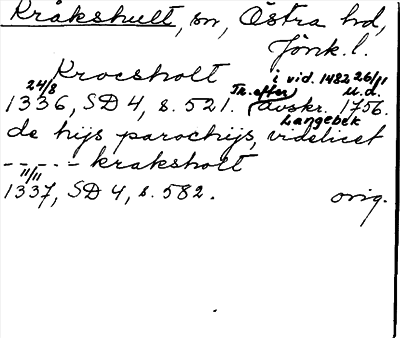 Kråkshult, sn, Östra hd,
Jönk. l.
Krocsholt i vid. 1482 26/11
24/8 Tr. efter u.d.
1336, SD 4, s. 521. (avskr. 1756.
Langebek
de hijs parochijs, videlicet
----- kraksholt
11/11
1337, SD 4, s. 582. orig.